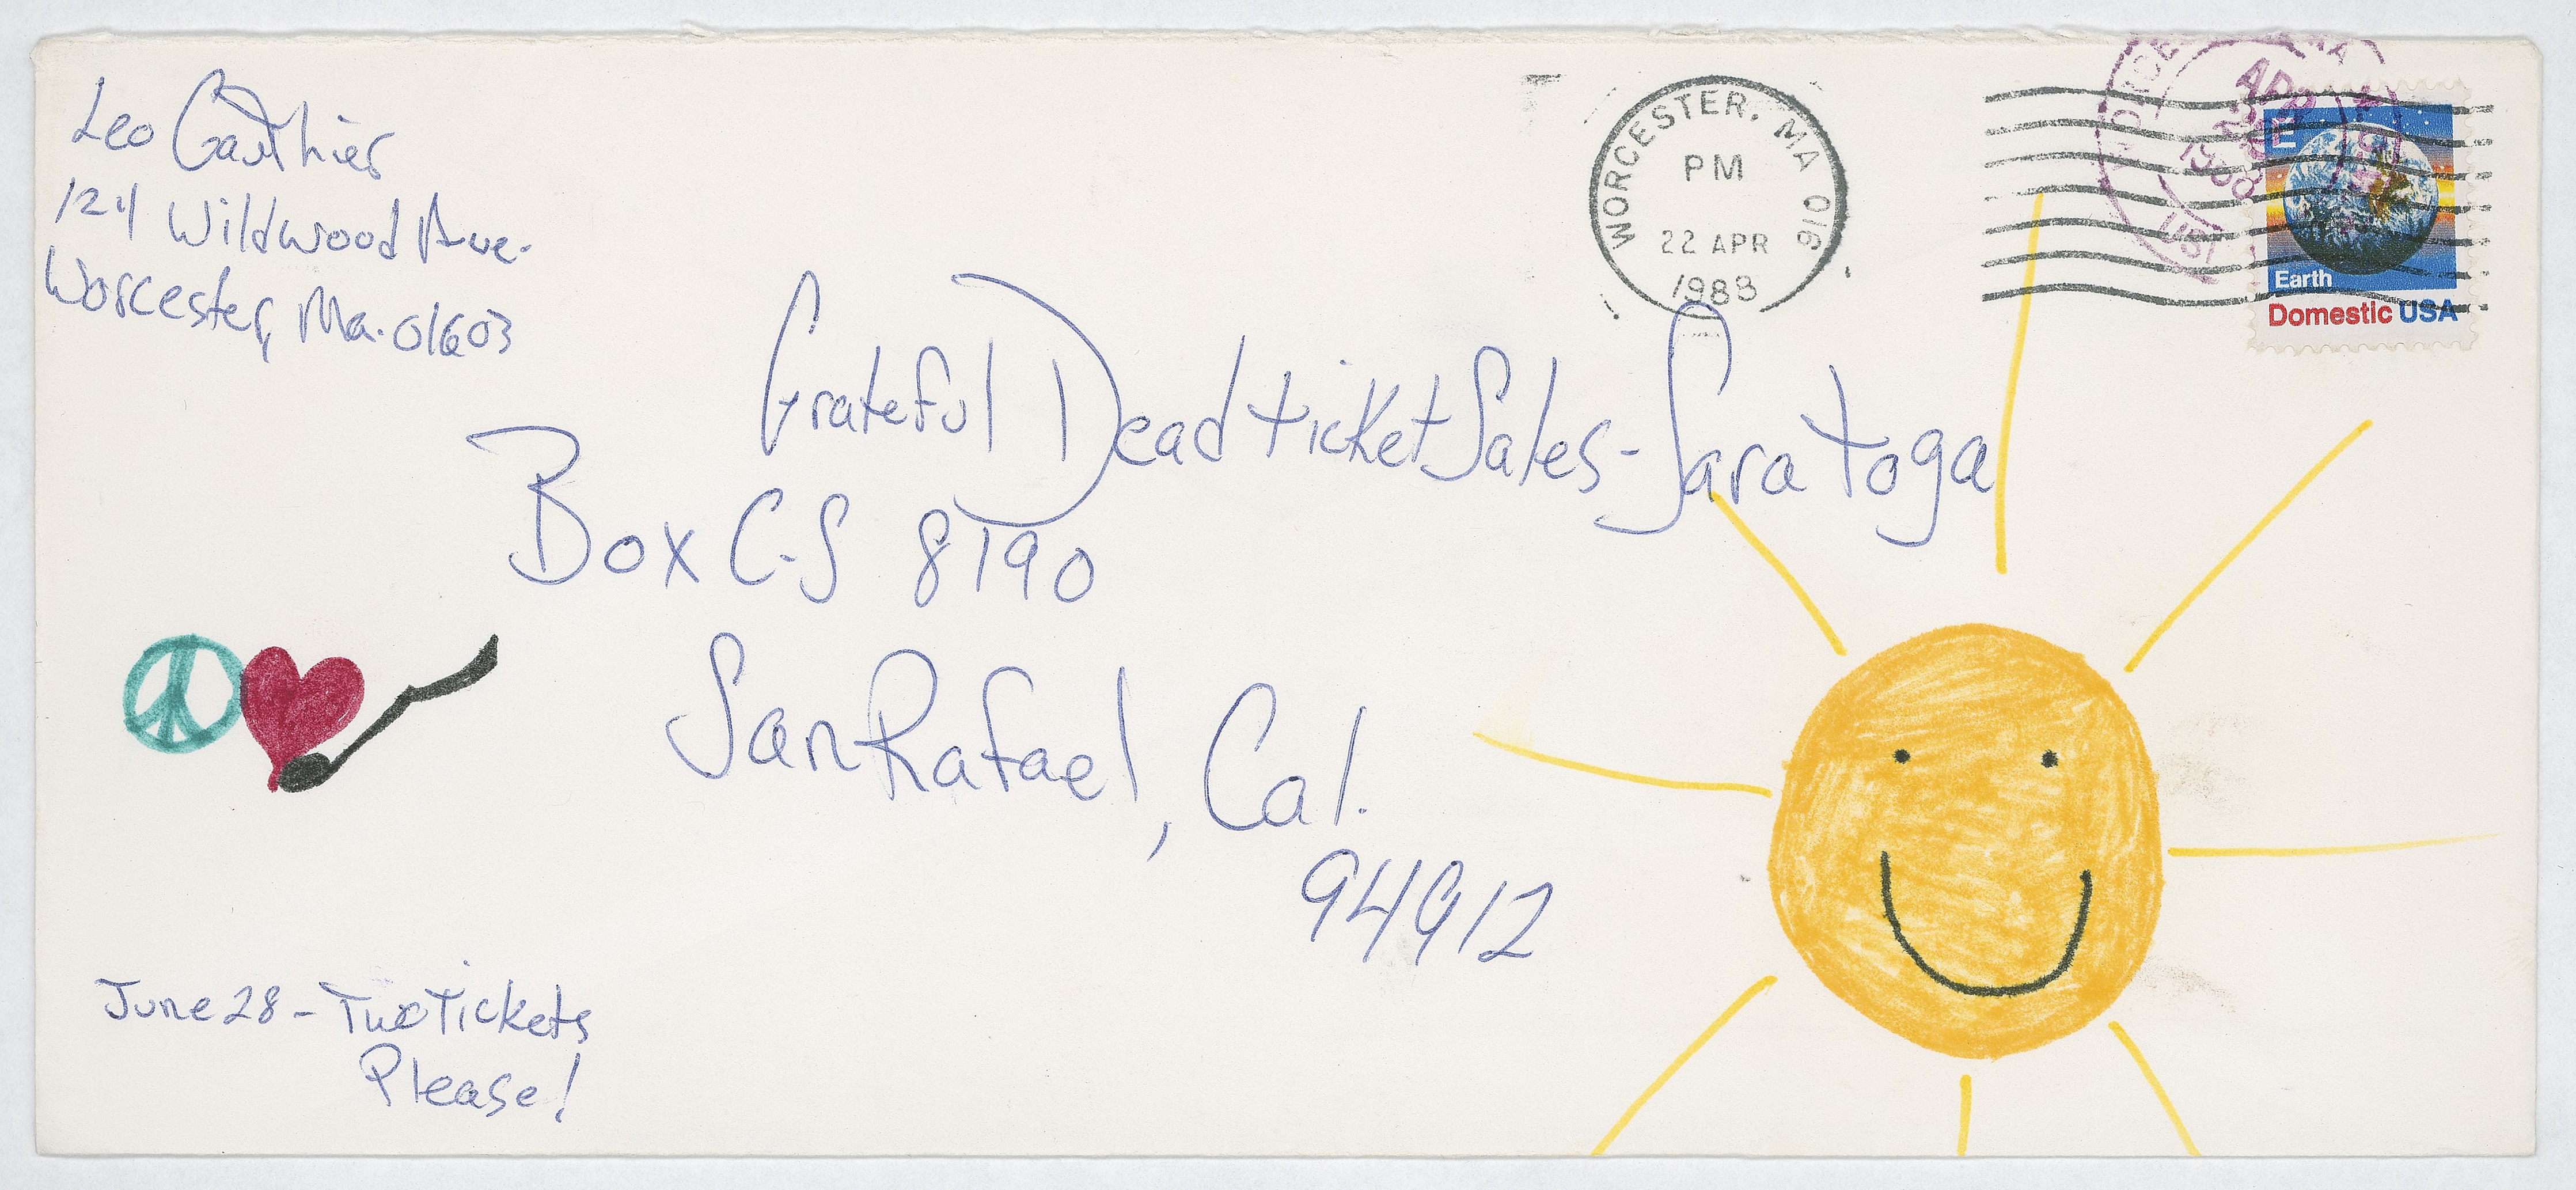 Leo Gauthier
124 Wildwood Ave.
Worcester, Ma. 01603
WORCESTER, MA 016
PM
22 APR
1988
APR
1988
USPS
E
Earth
Domestic USA
Grateful Dead ticket Sales - Saratoga
Box C-S 8190
San Rafael, Cal.
94912
June 28 - Two Tickets
Please!